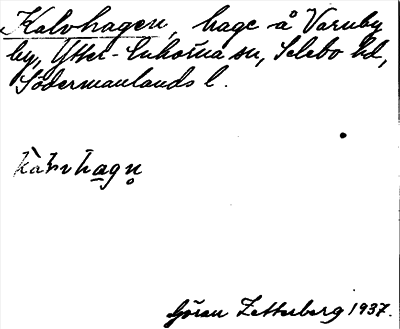 Kalvhagen, hage å Varuby
by, Ytter-Enhörna sn, Selebo hd,
Södermanlands l.
Göran Zetterberg 1937.